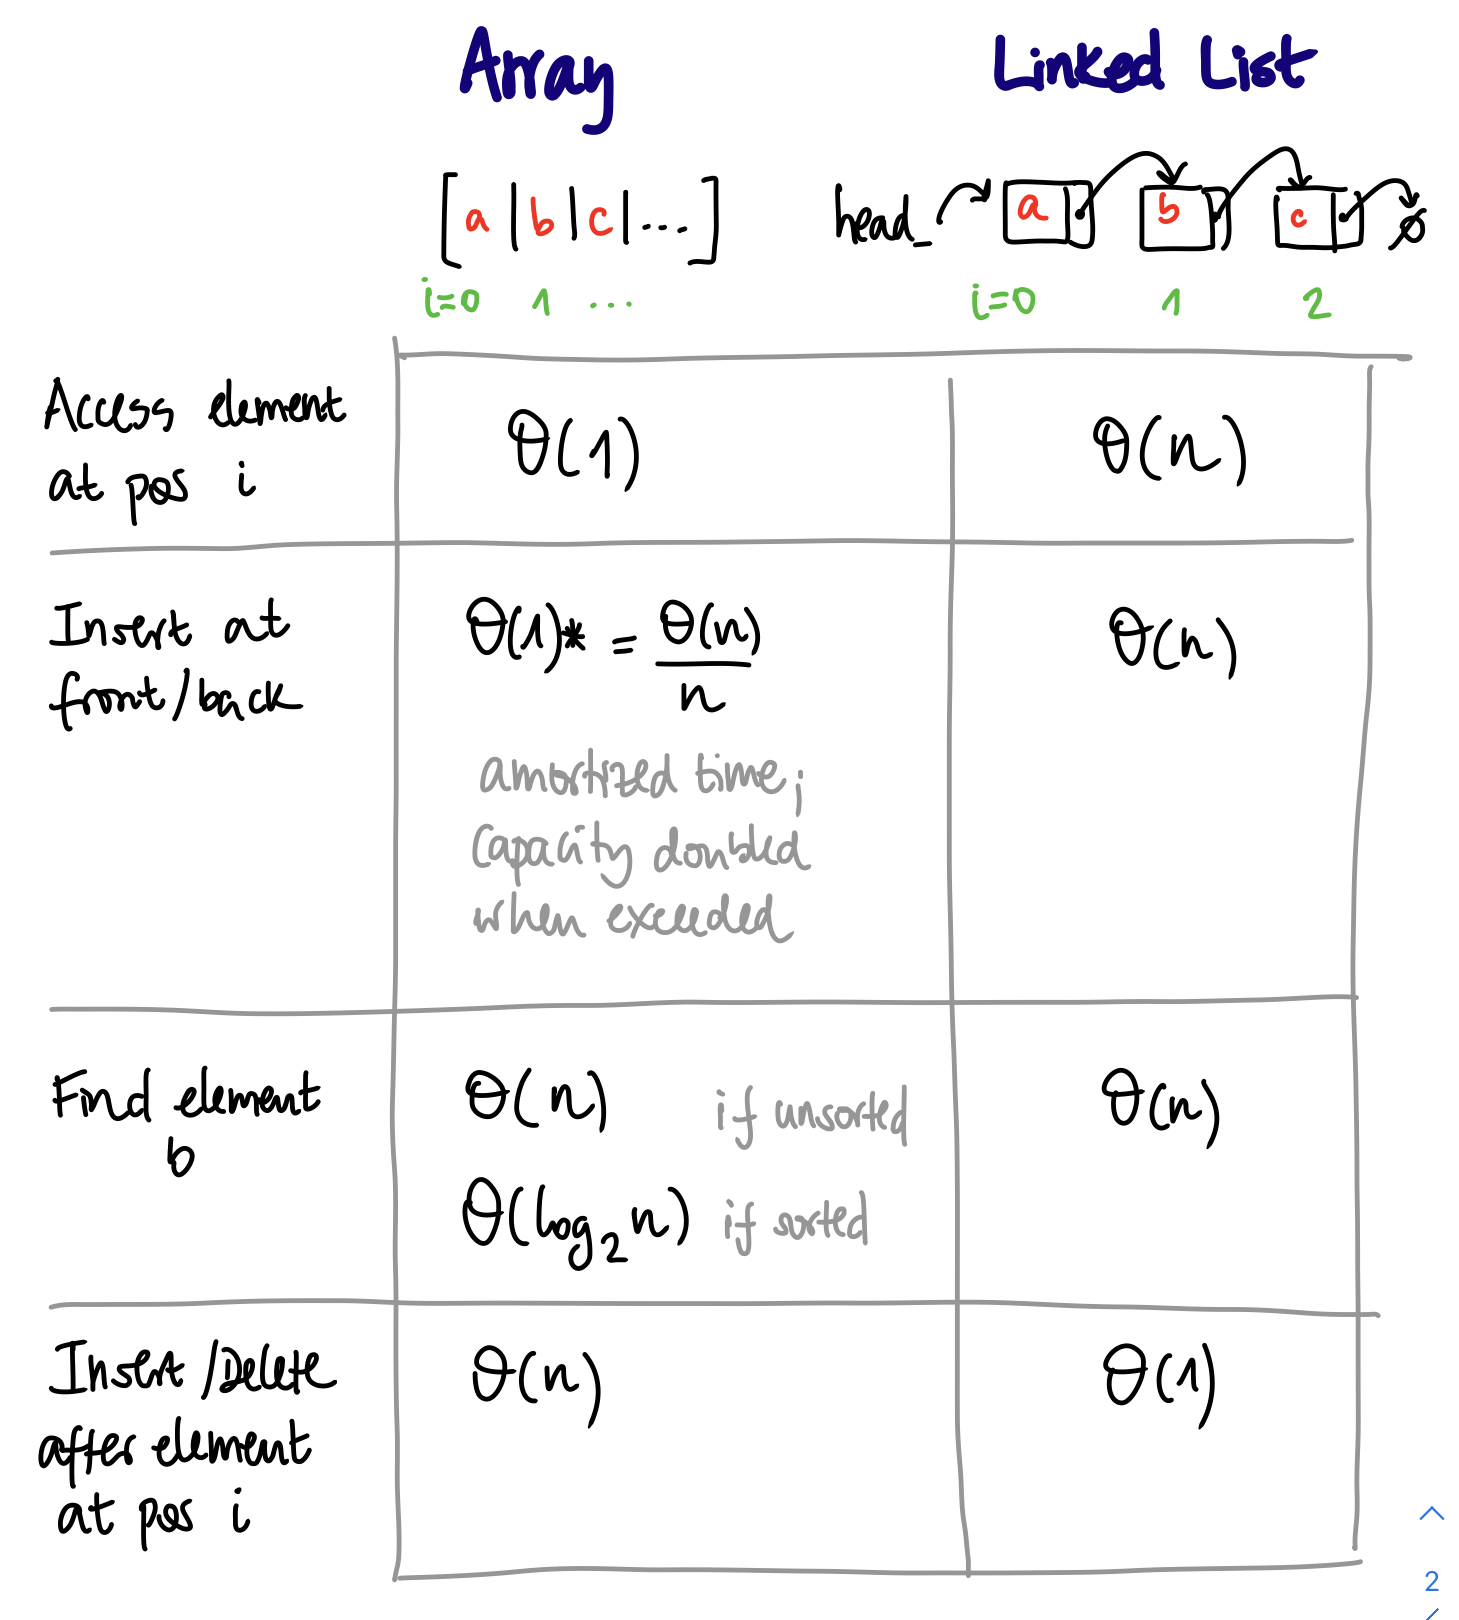 Array Linked List
[a|b|c|....] head_ a b c ∅
i=0 1 ... i=0 1 2
Access element
at pos i
Θ(1) Θ(n)
Insert at
front/back
Θ(1)* = Θ(n)
n
Θ(n)
amortized time;
capacity doubled
when exceeded
Find element
b
Θ(n) if unsorted Θ(n)
Θ(log₂n) if sorted
Insert/Delete
after element
at pos i
Θ(n) Θ(1)
2